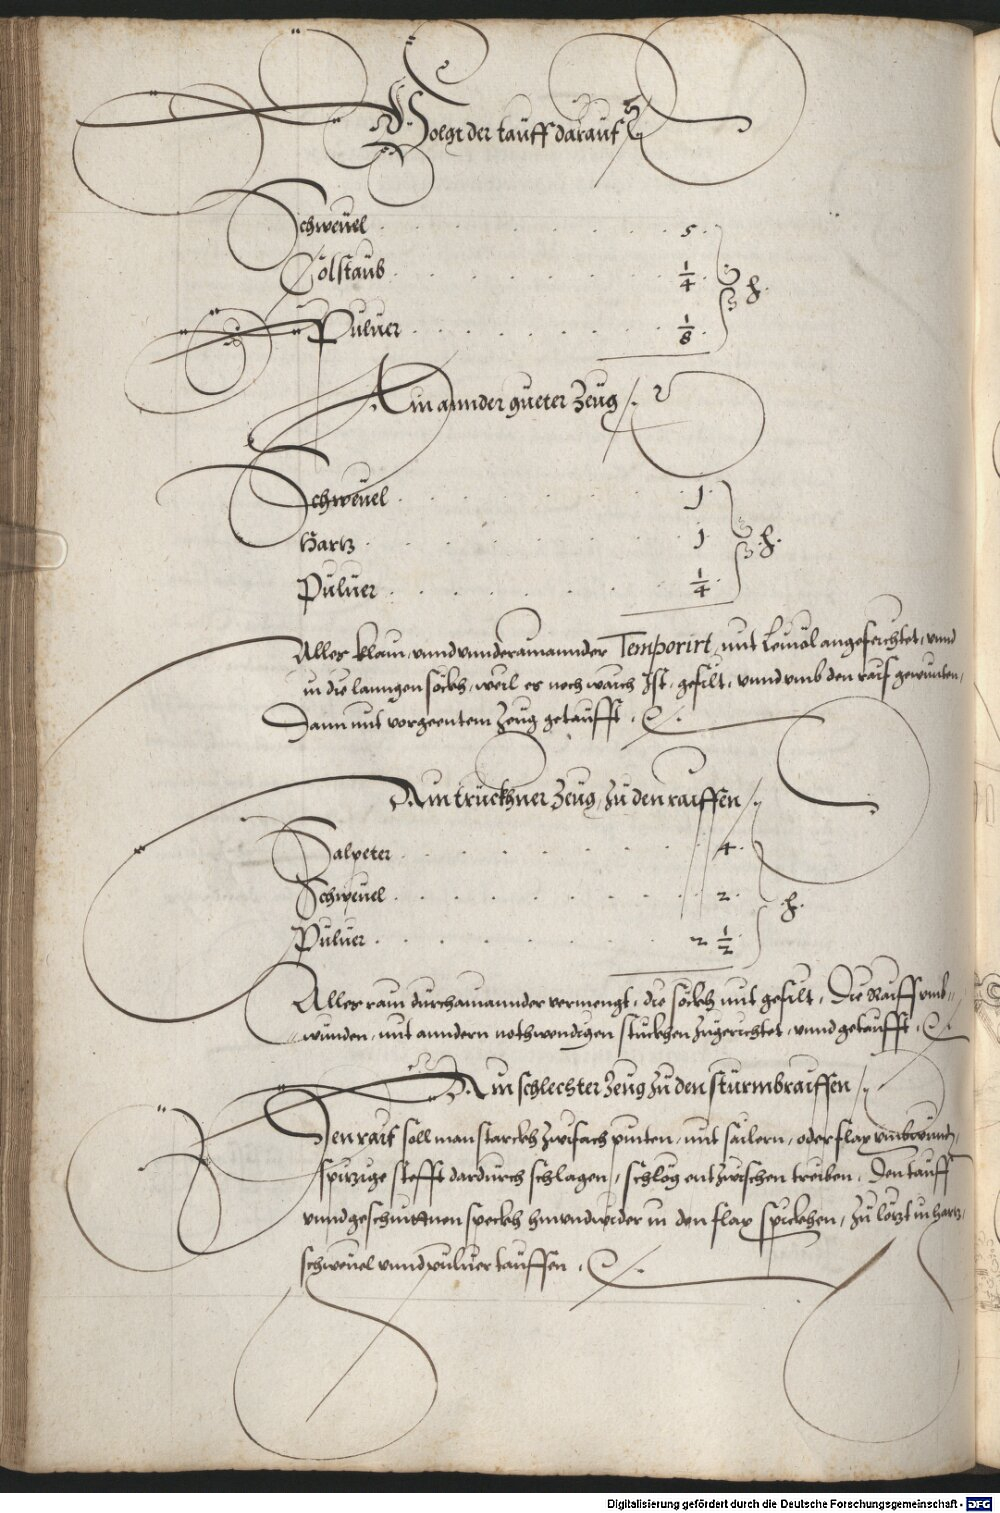 Volgt der tauff darauf
Schweuel . . . . . . . . 5 .
Cölstaub . . . . . . . . 1/4 . ℔.
Puluer . . . . . . . . 1/8 .
Ain annder gueter Zeug /.
Schweuel . . . . . . . . 1 .
Hartz . . . . . . . . 1 . ℔.
Puluer . . . . . . . . 1/4 .
Alles klain, vnnd vnnderainannder Temporirt, mit Leinöl angefeichtet, vnnd
in die lanngen söckh, weil es noch waich Ist, gefilt, vnnd vmb den raif gewunten,
Dann mit vorgeentem Zeug getaufft .
Ain trückhner Zeug, Zu den raiffen /.
Salpeter . . . . . . . . 4 .
Schweuel . . . . . . . . 2 . ℔.
Puluer . . . . . . . . 2 1/2 .
Alles rain durchainannder vermengt, die söckh mit gefilt, Die Raiff vmb=
=wunden, mit anndern nothwendigen stuckhen Zugerichtet, vnnd getaufft .
Ain schlechter Zeug Zu den sturmbraiffen /.
Den raif soll man starckh Zwifach pinten, mit sailern, oder flax vmbwunden,
spizige stefft dardurch schlagen, schlög entZwischen treiben, Den tauff
vnnd geschnittnen speckh hinvndwider in den flax spickhen, Zu lötzt in hartz,
schweuel vnnd puluer tauffen .
Digitalisierung gefördert durch die Deutsche Forschungsgemeinschaft - DFG